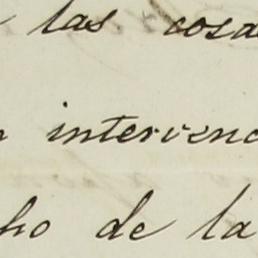 las cosa
intervenc
ho de la